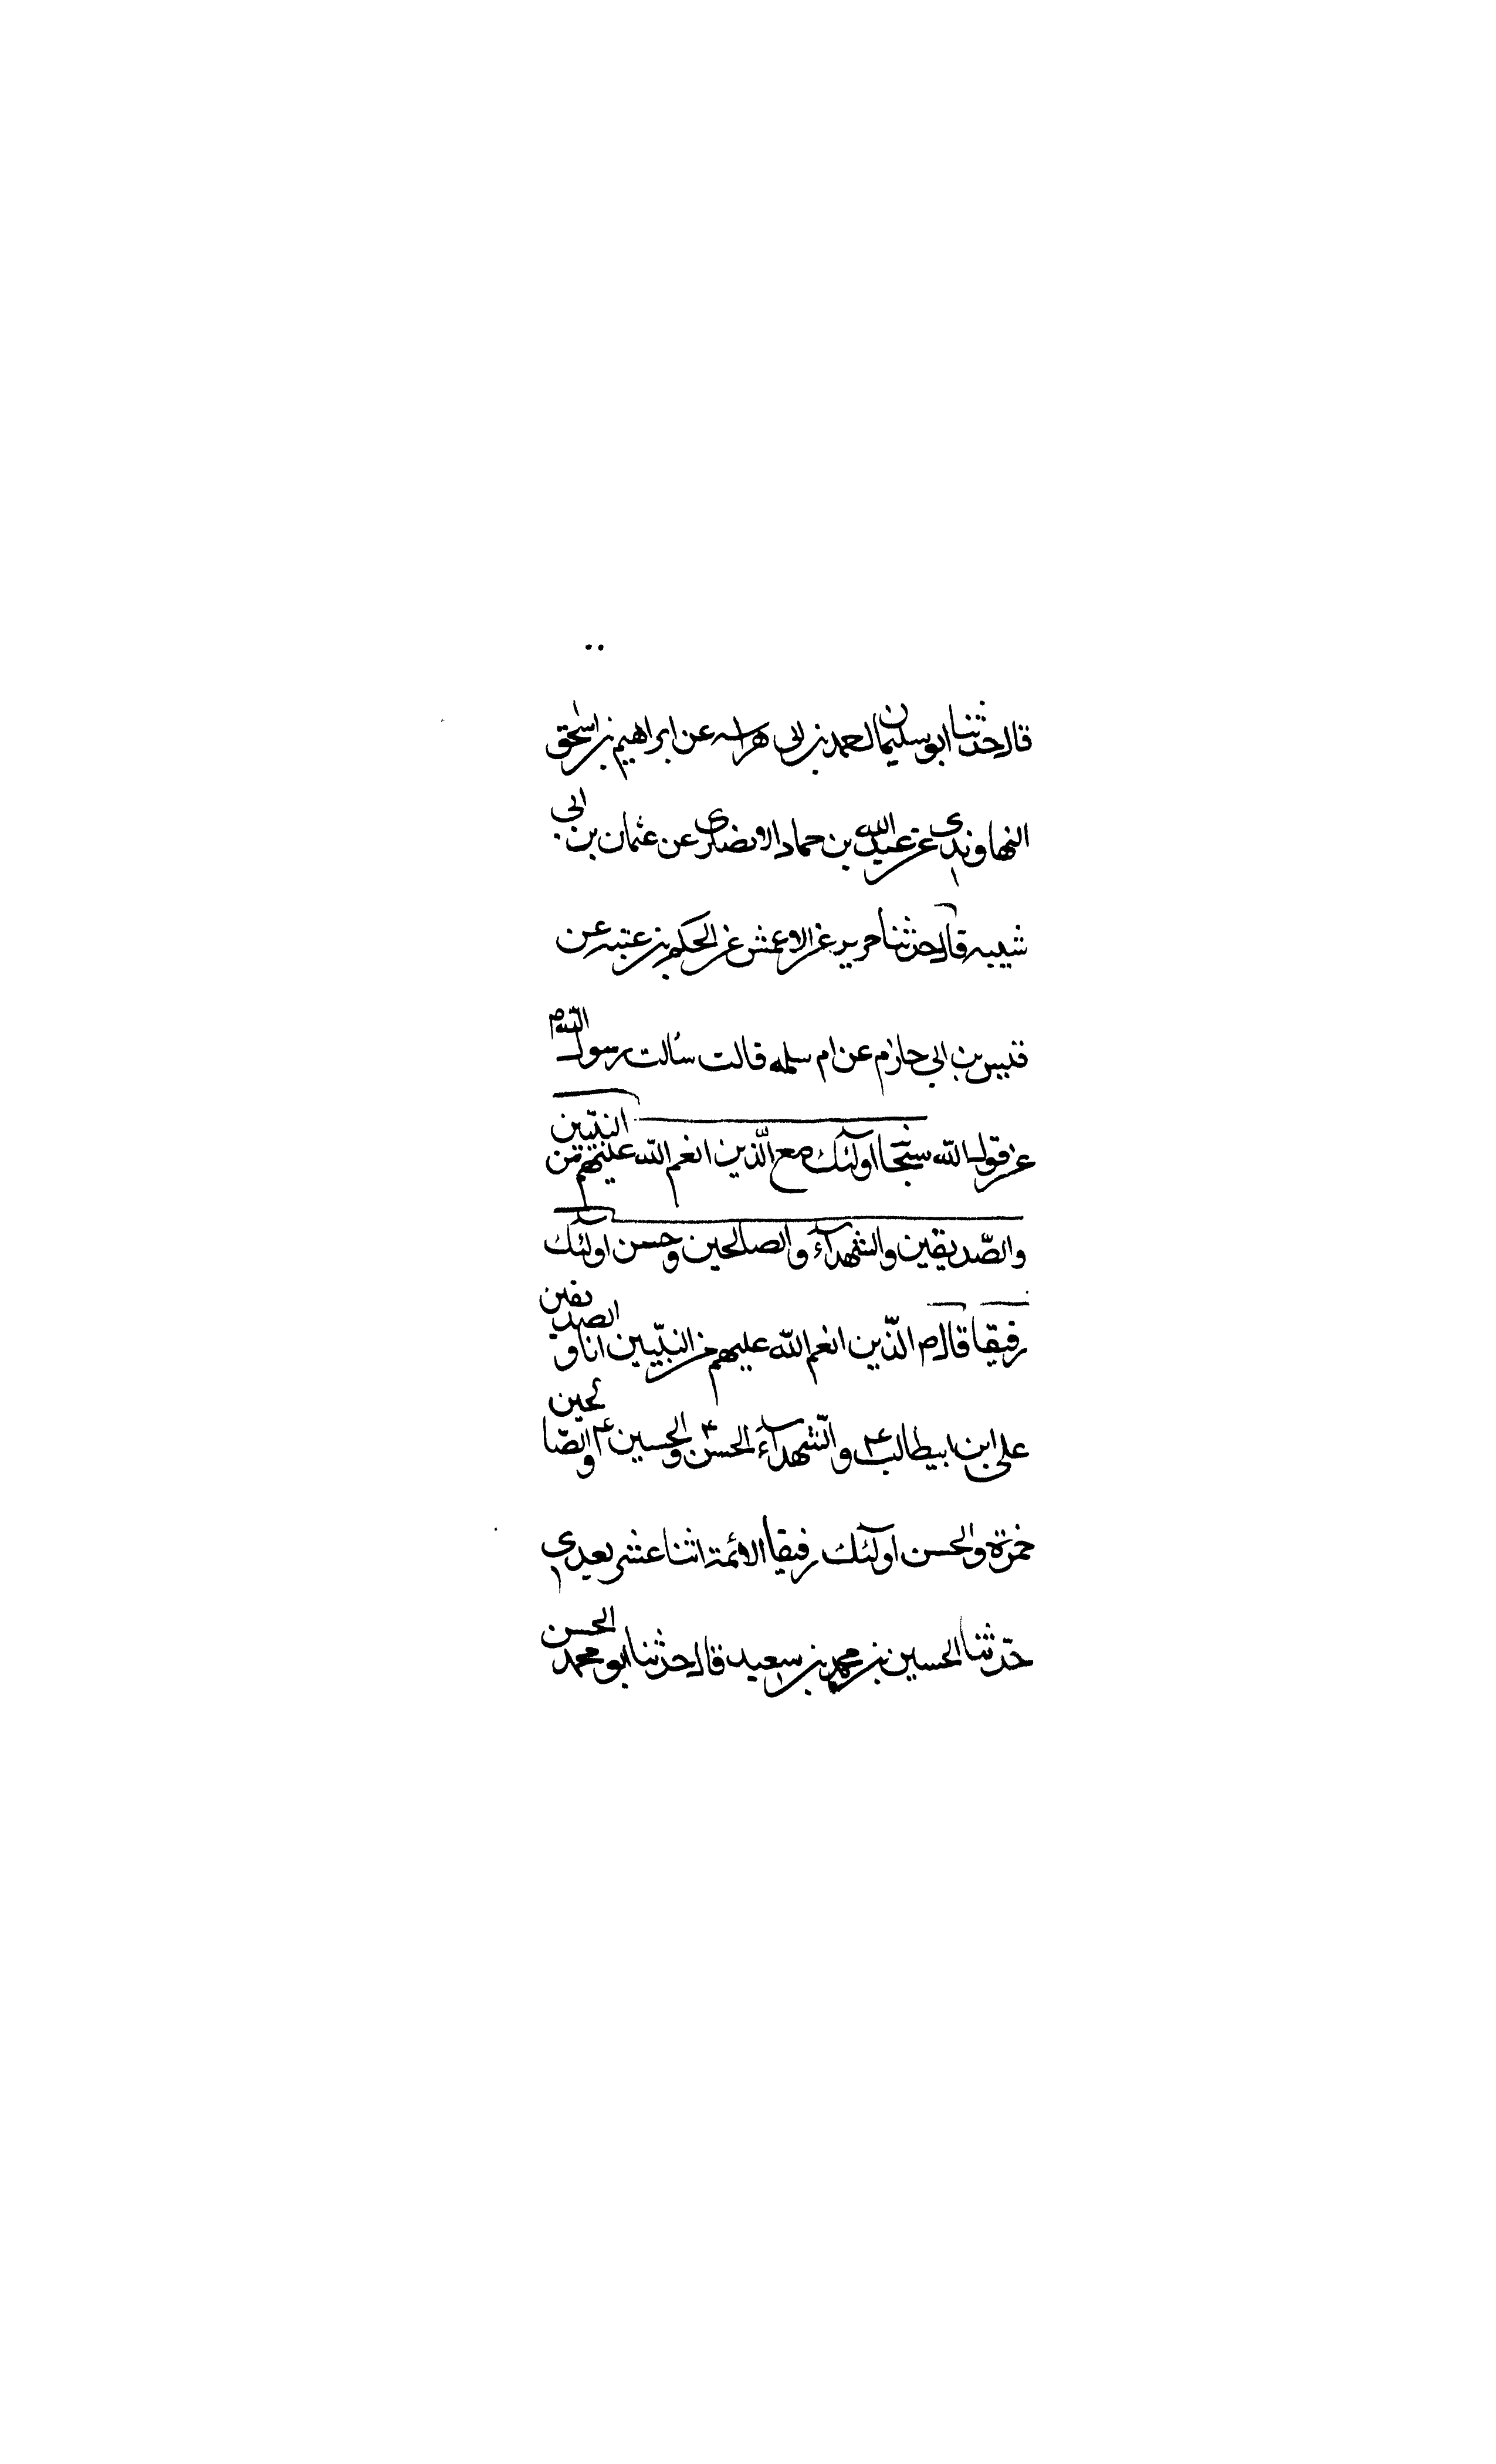 قال حدثنا ابو سليمان احمد بن ابى هراسه عن ابراهيم بن اسحق
النهاوندى عن عبد الله بن حماد الانصارى عن عثمان بن ابى
شيبه قال حدثنا حرير عن الاعمش عن الحكم بن عتبه عن
قيس بن ابى حازم عن ام سلمه قالت سألت رسول الله ص
عن قول الله سبحا اولئك مع الذين انعم الله عليهم من النبيّين
والصّديقين والشهدآء والصالحين وحسن اولئك
رفيقا قال ص الذّين انعم الله عليهم من النبيّين انا والصديقين
على ابن ابيطالب ع والشّهدآء الحسن ع والحسين ع والصّالحين
حمزة والحسن اولئك رفيقا الائمة اثنا عشر بعدى
حدّثنا الحسين بن محمد بن سعيد قال حدثنا ابو محمد الحسن